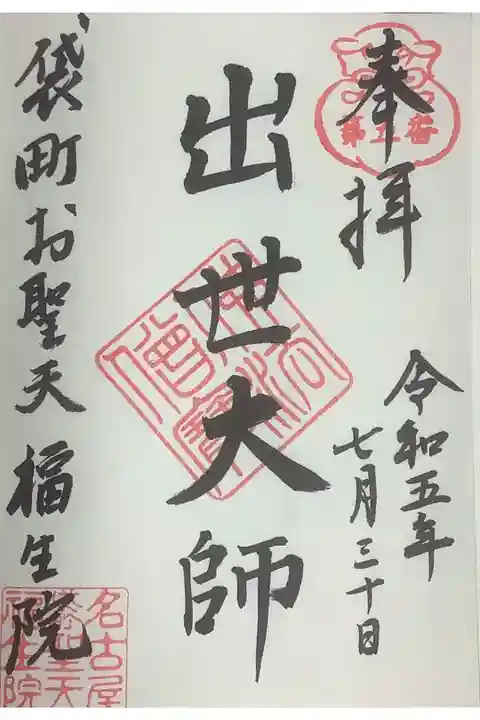 奉拝
第五番
令和五年
七月三十日
出世大師
佛法僧寶
袋町お聖天 福生院
名古屋
袋聖天
福生院